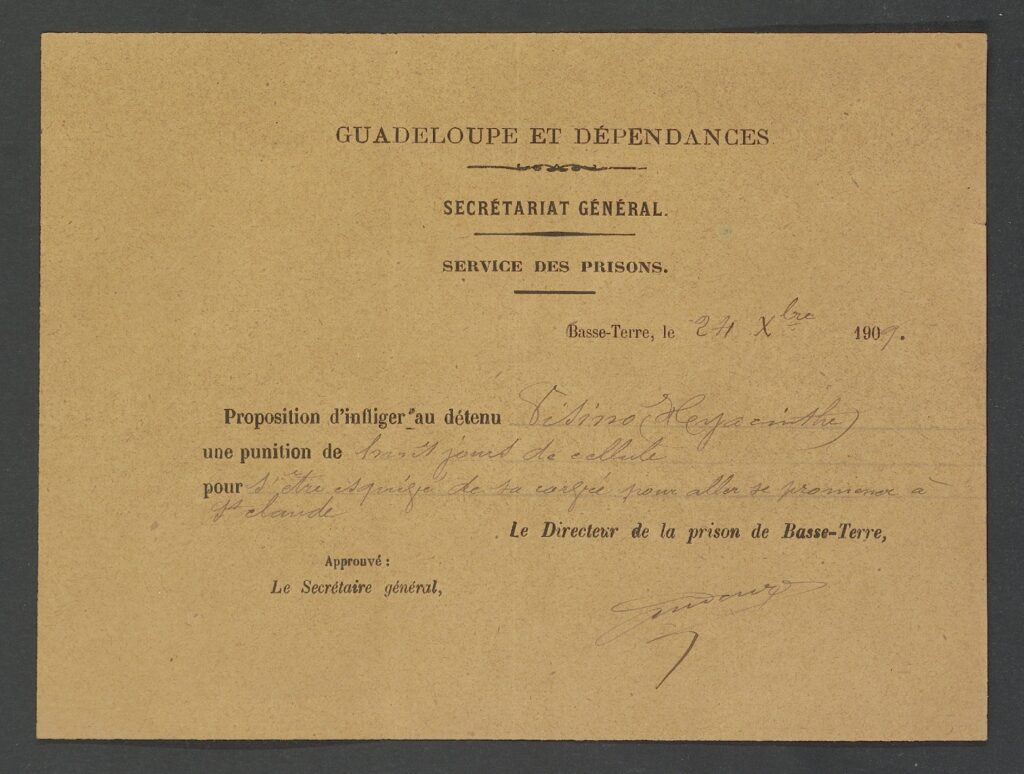 GUADELOUPE ET DÉPENDANCES
SECRÉTARIAT GÉNÉRAL.
SERVICE DES PRISONS.
Basse-Terre, le 24 Xbre 1909.
Proposition d'infliger au détenu Visino (Hyacinthe)
une punition de huit jours de cellule
pour s'être esquivé de sa corvée pour aller se promener à
St claude
Le Directeur de la prison de Basse-Terre,
Approuvé :
Le Secrétaire général,